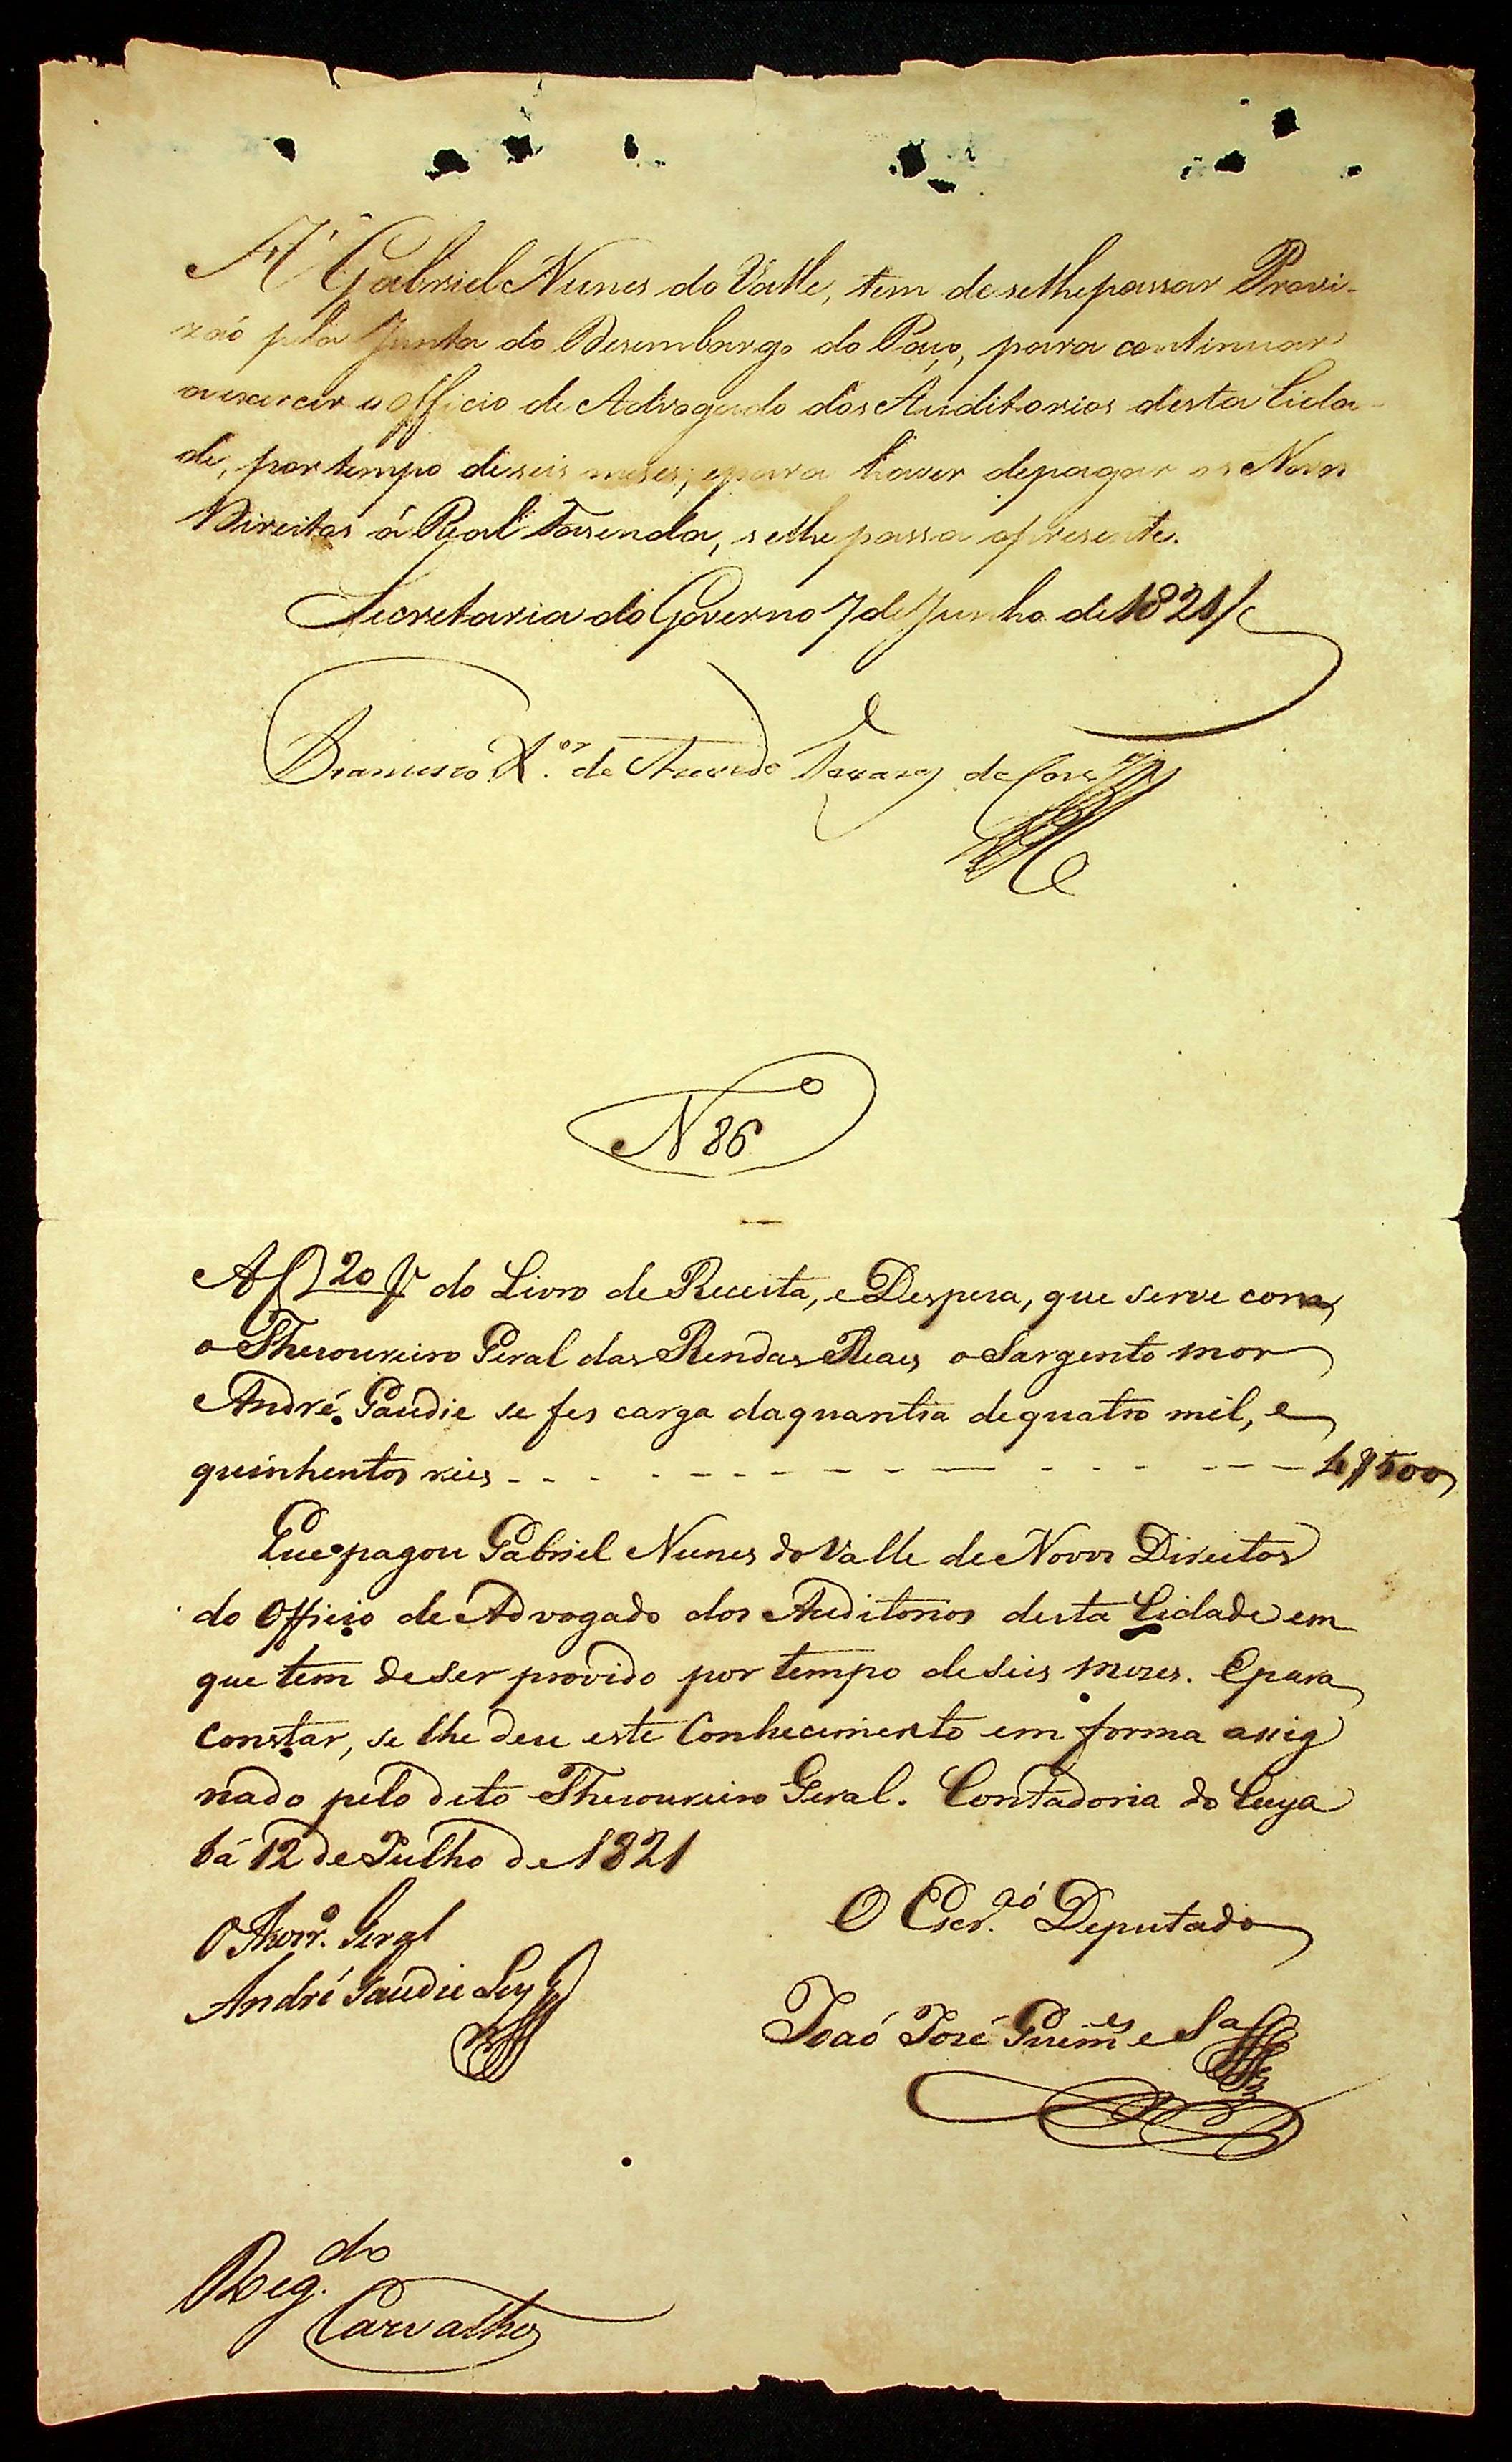 A' Gabriel Nunes do Valle, tem de selhe passar Provi-
zaó pela Junta do Desembargo do Paço, para continuar
a exercer o Officio de Advogado dos Auditorios desta Cida-
de, por tempo de seis meses; e para haver de pagar os Novos
Direitos á Real Fasenda, se lhe passa a presente.
Secretaria do Governo 7 de Junho de 1821
Francisco X.er de Azevedo
No 86
A f 20 V do Livro de Receita, e Despesa, que serve com
o Thesoureiro Geral das Rendas Reaes o Sargento mor
André Gaudie se fes carga da quantia de quatro mil, e
quinhentos reis - - - - - - - - - - - - 4$500
Que pagou Gabriel Nunes do Valle de Novos Direitos
do Officio de Advogado dos Auditorios desta Cidade em
que tem de ser provido por tempo de seis mezes. E para
constar, se lhe deu este Conhecimento em forma assig
nado pelo dito Thesoureiro Geral. Contadoria do Cuya
bá 12 de Julho de 1821
O Thezr.o Geral
André Gaudie Ley
O Escr.aó Deputado
Joaó José Guim.es e S.a
Reg.do
Carvalho